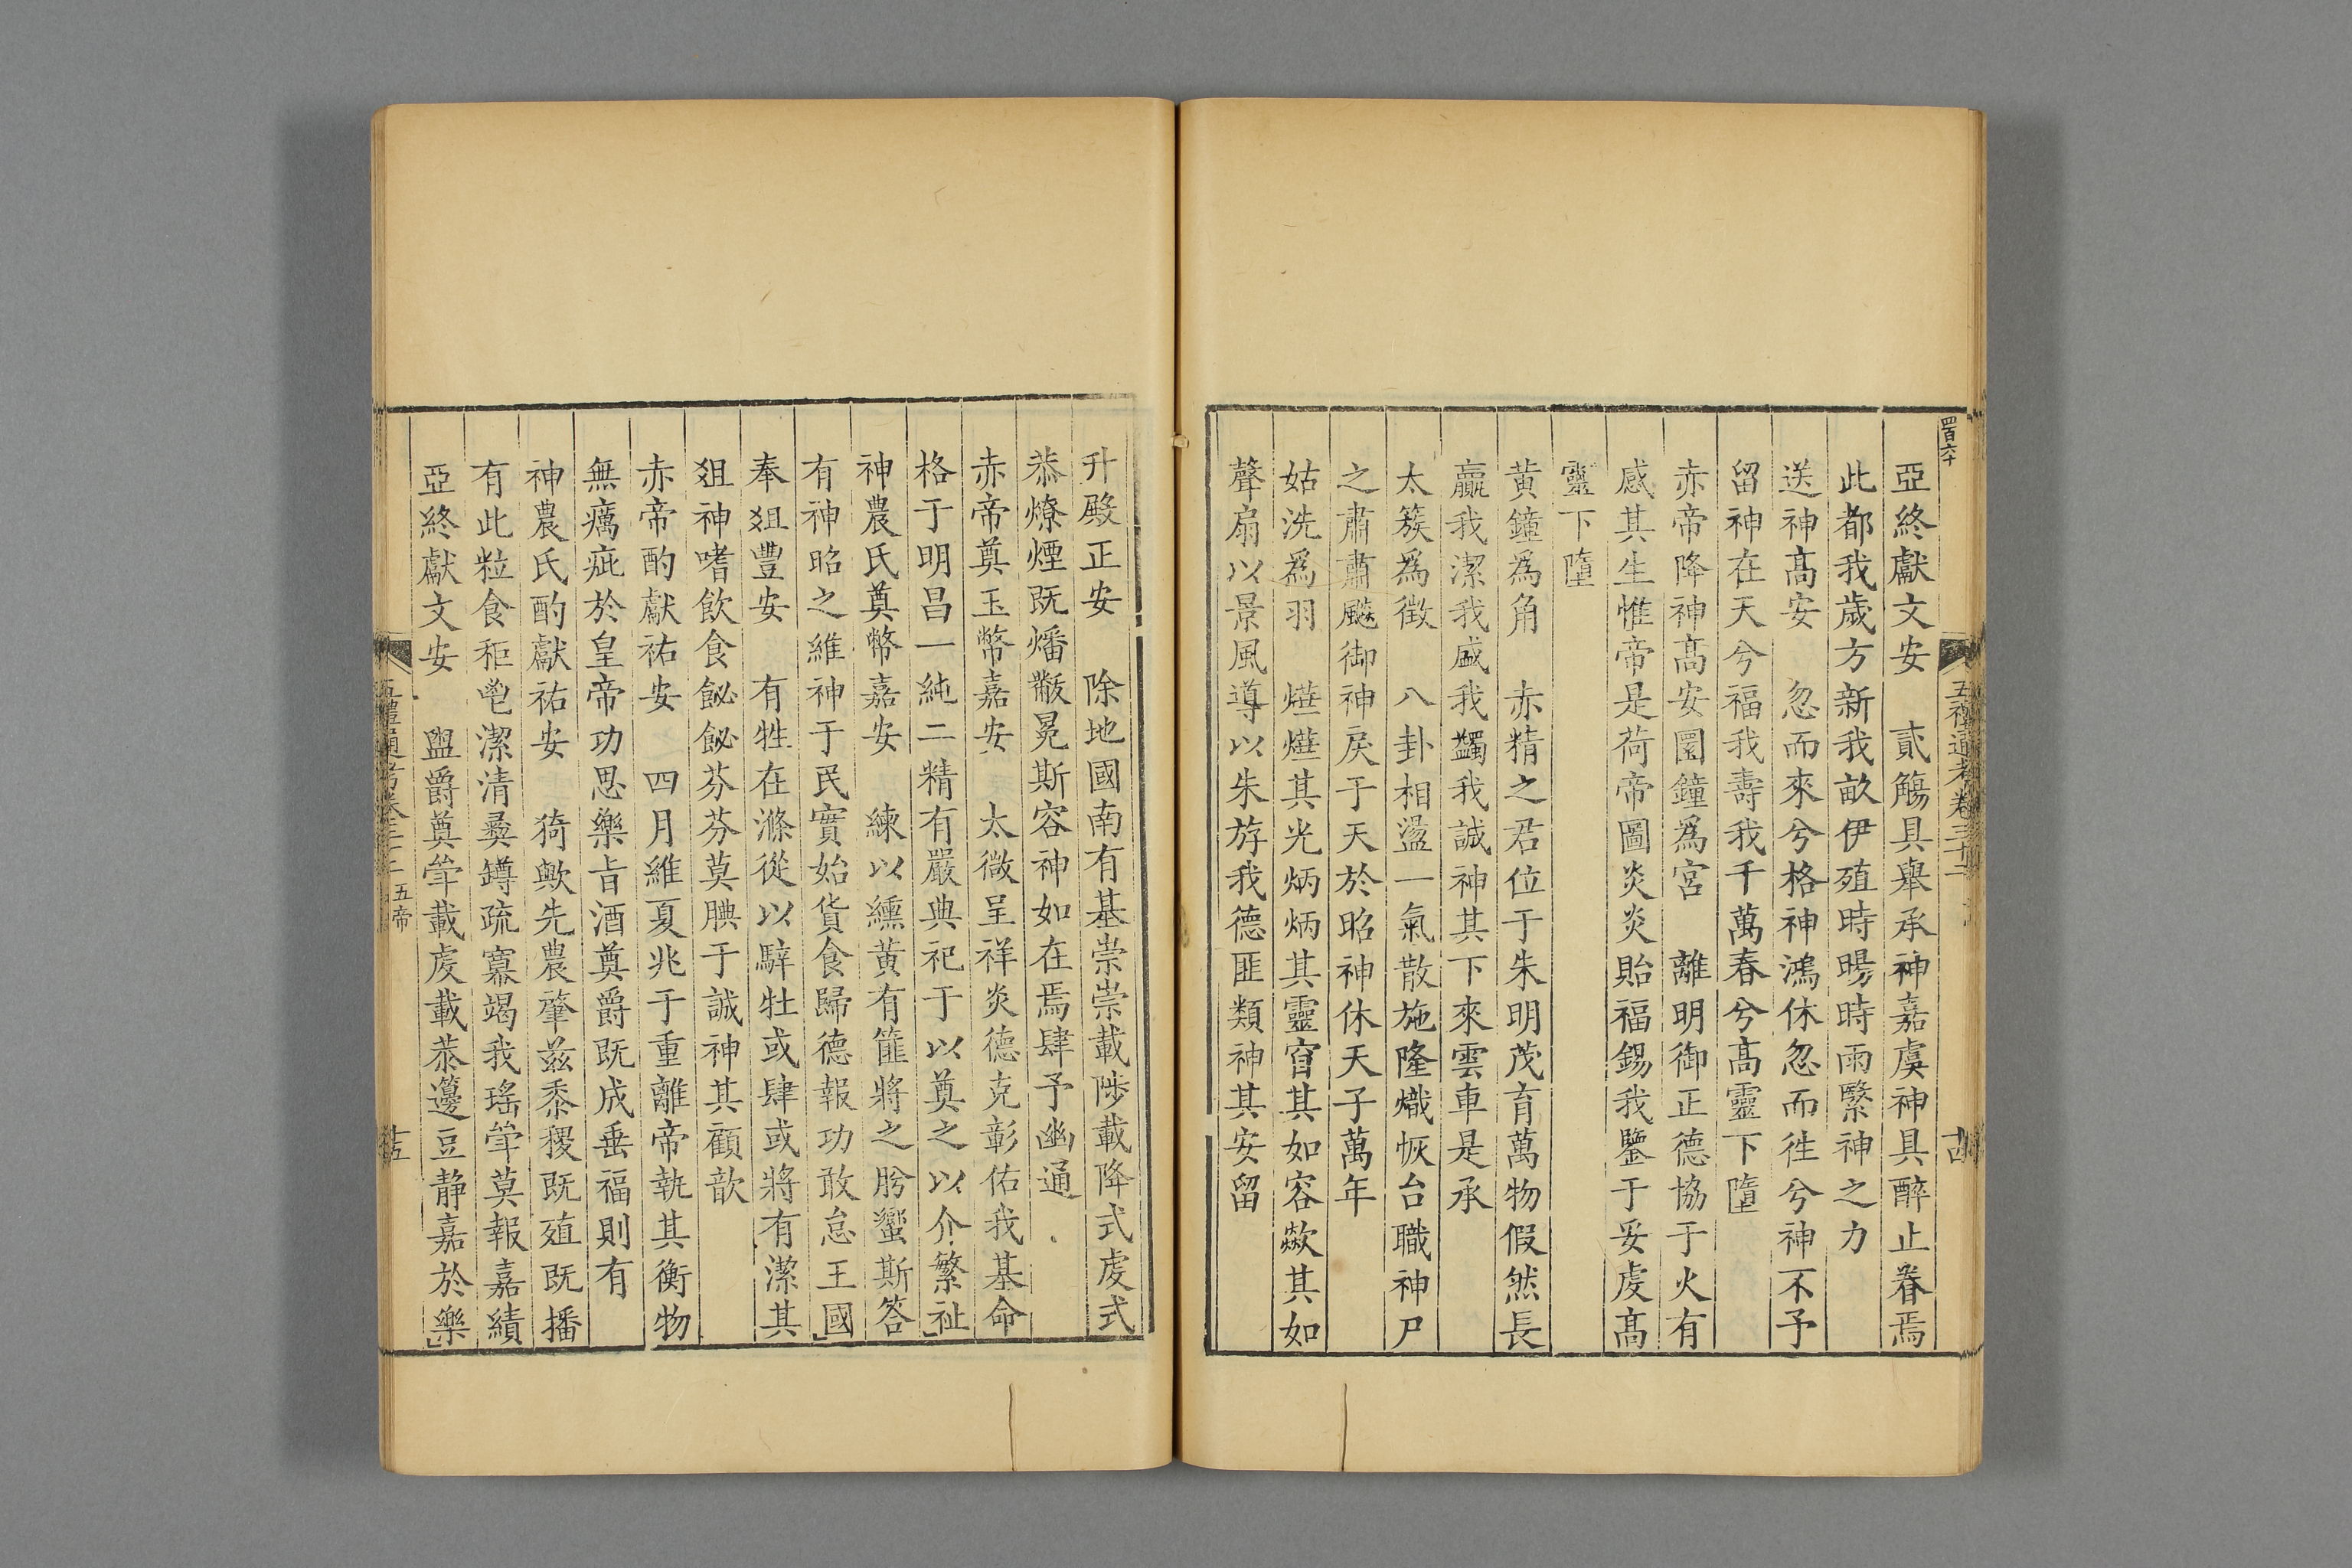 四百六十
五禮通考卷三十二
十四
亞終獻文安　貳觴具舉承神嘉虞神具醉止眷焉
此都我歲方新我畝伊殖時暘時雨繄神之力
送神高安　忽而來兮格神鴻休忽而徃兮神不予
留神在天兮福我壽我千萬春兮高靈下墮
赤帝降神高安圜鐘爲宮　離明御正德協于火有
感其生惟帝是荷帝圖炎炎貽福錫我鑒于妥虔高
靈下墮
黃鐘爲角　赤精之君位于朱明茂育萬物假然長
嬴我潔我盛我蠲我誠神其下來雲車是承
太簇爲徵　八卦相盪一氣散施隆熾恢台職神尸
之肅肅飇御神戾于天於昭神休天子萬年
姑洗爲羽　燁燁其光炳炳其靈窅其如容歘其如
聲扇以景風導以朱斿我德匪類神其安留
升殿正安　除地國南有基崇崇載陟載降式虔式
恭燎煙既燔黻冕斯容神如在焉肆予幽通
赤帝奠玉幣嘉安　太微呈祥炎德克彰佑我基命
格于明昌一純二精有嚴典祀于以奠之以介繁祉
神農氏奠幣嘉安　練以纁黃有篚將之肸蠁斯答
有神昭之維神于民實始貨食歸德報功敢怠王國
奉俎豐安　有牲在滌從以騂牡或肆或將有潔其
俎神嗜飲食飶飶芬芬莫腆于誠神其顧歆
赤帝酌獻祐安　四月維夏兆于重離帝執其衡物
無癘疵於皇帝功思樂旨酒奠爵既成垂福則有
神農氏酌獻祐安　猗歟先農肇茲黍稷既殖既播
有此粒食秬鬯潔清彝罇疏冪竭我瑤斝莫報嘉績
亞終獻文安　盥爵奠斝載虔載恭籩豆静嘉於樂
五禮通考卷三十二
五帝
十五